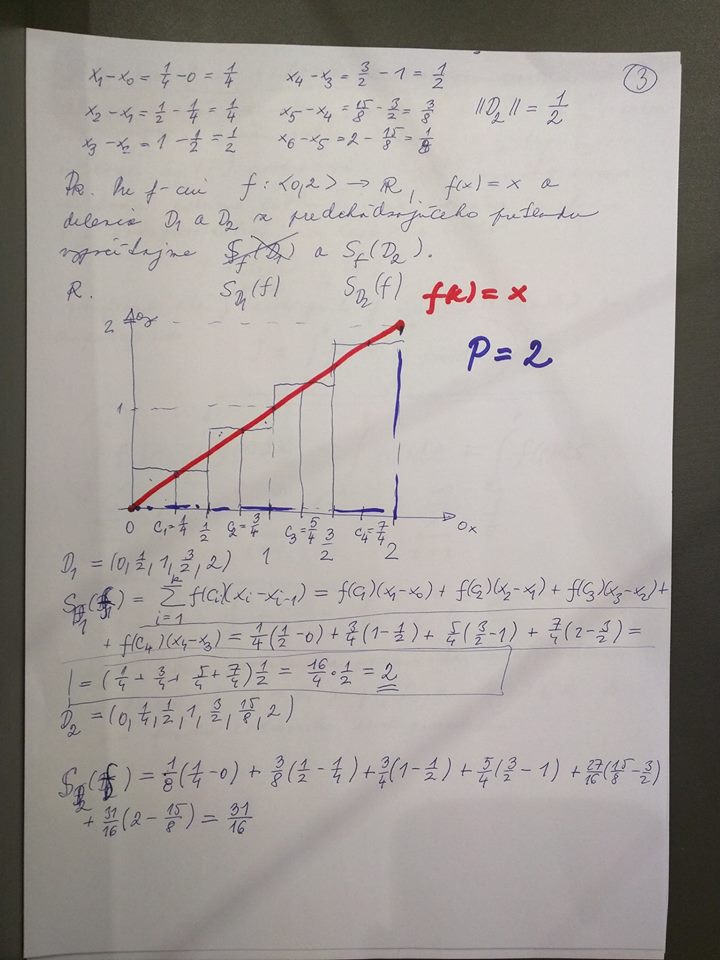 x₁-x₀ = 1/4 - 0 = 1/4    x₄-x₃ = 3/2 - 1 = 1/2    ③
x₂-x₁ = 1/2 - 1/4 = 1/4    x₅-x₄ = 15/8 - 3/2 = 3/8    ||D₂|| = 1/2
x₃-x₂ = 1 - 1/2 = 1/2    x₆-x₅ = 2 - 15/8 = 1/8
Pr. Pre f-ciu f: <0,2> → R, f(x) = x a
delenia D₁ a D₂ z predchádzajúceho príkladu
vypočítajme S_f(D₁) a S_f(D₂).
R.    S_D₁(f)    S_D₂(f)    f(x) = x
2    oy
P = 2
1
0    c₁=1/4    1/2    c₂=3/4    1    c₃=5/4    3/2    c₄=7/4    2    ox
D₁ = (0, 1/2, 1, 3/2, 2)
S_D₁(f) = Σ f(cᵢ)(xᵢ-xᵢ₋₁) = f(c₁)(x₁-x₀) + f(c₂)(x₂-x₁) + f(c₃)(x₃-x₂) +
i=1
+ f(c₄)(x₄-x₃) = 1/4(1/2-0) + 3/4(1-1/2) + 5/4(3/2-1) + 7/4(2-3/2) =
= (1/4 + 3/4 + 5/4 + 7/4) 1/2 = 16/4 · 1/2 = 2
D₂ = (0, 1/4, 1/2, 1, 3/2, 15/8, 2)
S_D₂(f) = 1/8(1/4-0) + 3/8(1/2-1/4) + 3/4(1-1/2) + 5/4(3/2-1) + 27/16(15/8-3/2)
+ 31/16(2-15/8) = 31/16